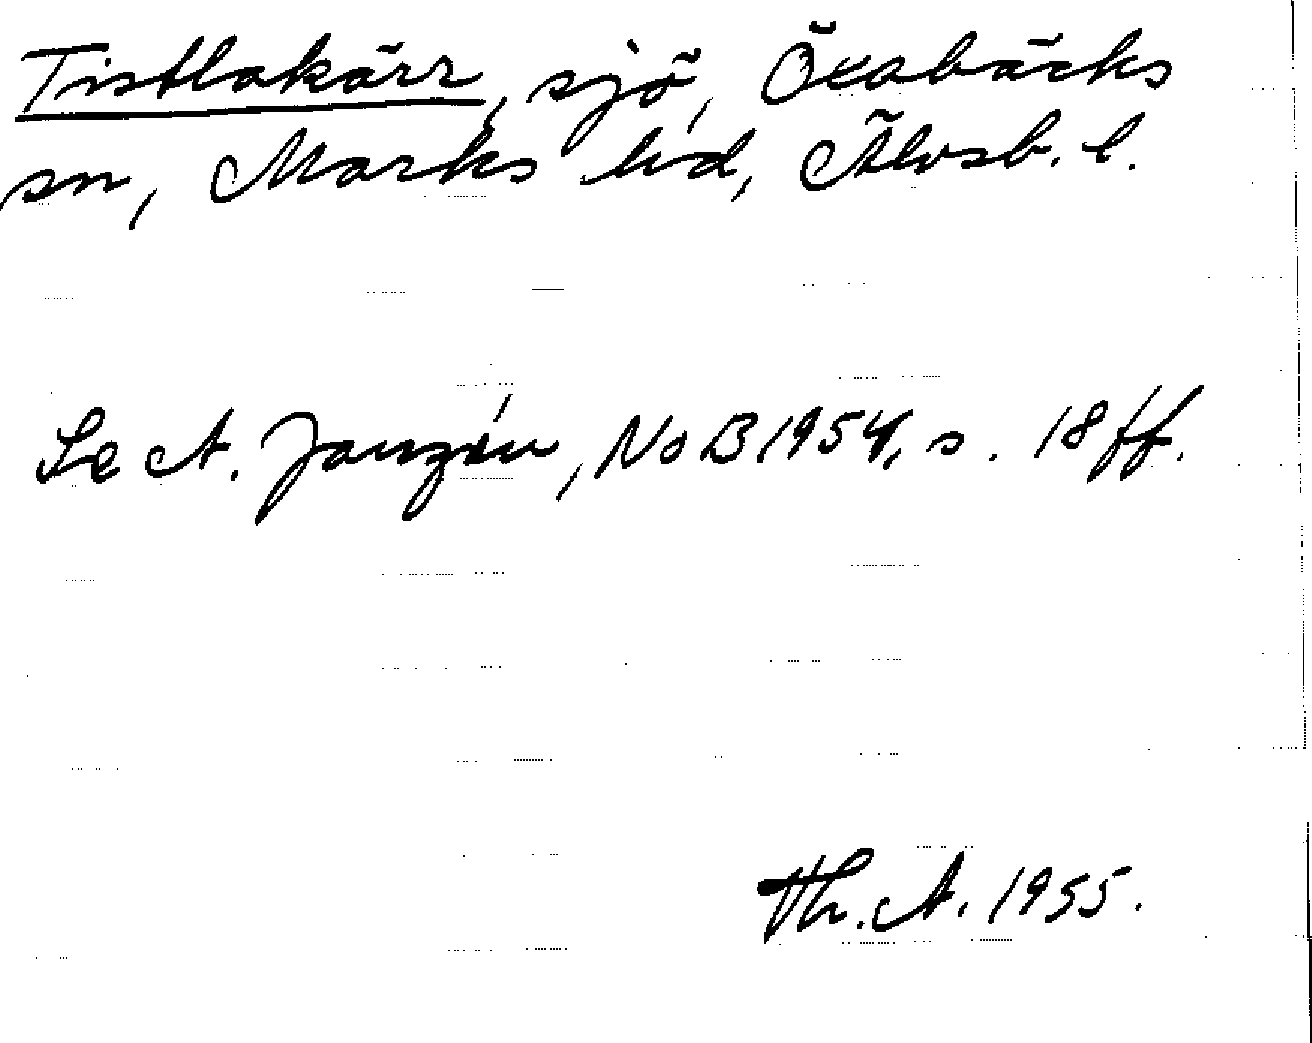 Tistlakärr, sjö, Öxabäcks
sn, Marks hd, Älvsb. l.
Se A. Janzén, NoB 1954, s. 18 ff.
Th. A. 1955.